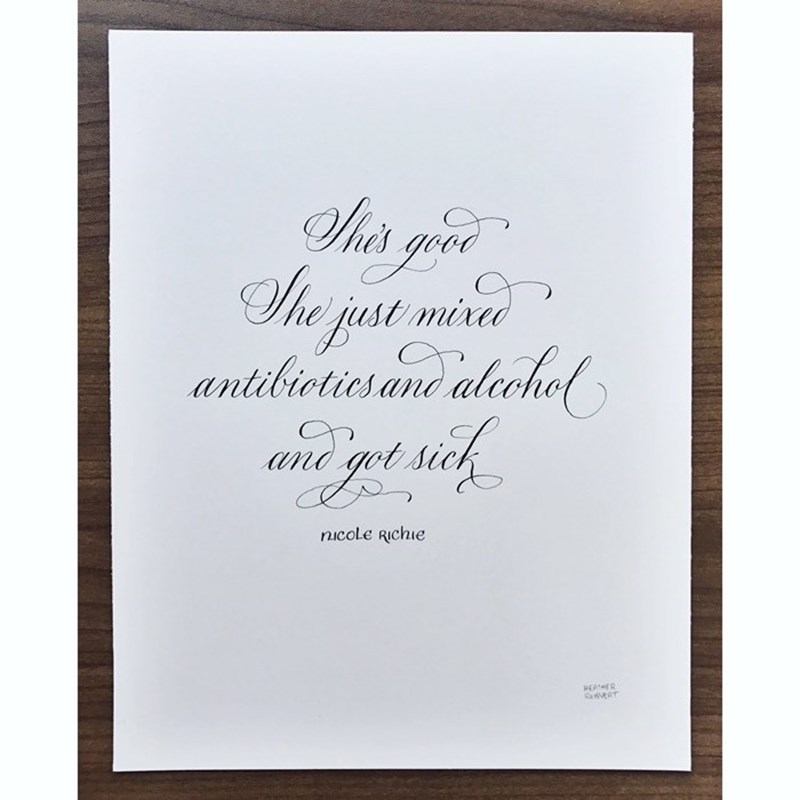 She's good
She just mixed
antibiotics and alcohol
and got sick
NICOLE RICHIE
HEATHER